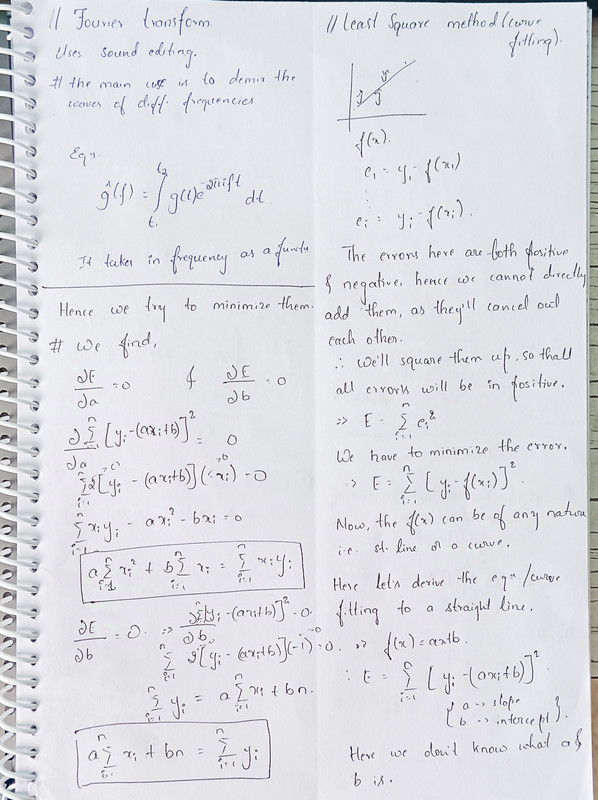 // Fourier transform
Uses sound editing.
# the main use is to demix the
waves of diff. frequencies
Eqn.
ĝ(f) = ∫_{t₁}^{t₂} g(t)e^{-2πift} dt
It takes in frequency as a
// Least Square method (curve
fitting).
f(x).
e₁ = y₁ - f(x₁)
⋮
eᵢ = yᵢ - f(xᵢ).
The errors here are both positive
& negative, hence we cannot directly
add them, as they'll cancel out
each other.
∴ We'll square them up, so thall
all errors will be in positive.
⇒ E = Σ_{i=1}^{n} eᵢ²
We have to minimize the error.
⇒ E = Σ_{i=1}^{n} [yᵢ - f(xᵢ)]².
Now, the f(x) can be of any nature
i.e. st. line or a curve.
Here let's derive the eqn/curve
fitting to a straight line.
⇒ f(x) = ax+b.
∴ E = Σ_{i=1}^{n} [yᵢ - (axᵢ+b)]².
{a → slope
b → intercept}.
Here we don't know what a &
b is.
Hence we try to minimize them.
# We find,
∂E/∂a = 0 & ∂E/∂b = 0
∂/∂a Σ_{i=1}^{n} [yᵢ - (axᵢ+b)]² = 0
Σ_{i=1}^{n} 2[yᵢ - (axᵢ+b)](-xᵢ) = 0
Σ_{i=1}^{n} xᵢyᵢ - axᵢ² - bxᵢ = 0
a Σ_{i=1}^{n} xᵢ² + b Σ_{i=1}^{n} xᵢ = Σ_{i=1}^{n} xᵢyᵢ
∂E/∂b = 0. ⇒ ∂Σ[yᵢ - (axᵢ+b)]²/∂b = 0.
Σ_{i=1}^{n} 2[yᵢ - (axᵢ+b)](-1) = 0.
Σ_{i=1}^{n} yᵢ = a Σ_{i=1}^{n} xᵢ + bn.
a Σ_{i=1}^{n} xᵢ + bn = Σ_{i=1}^{n} yᵢ